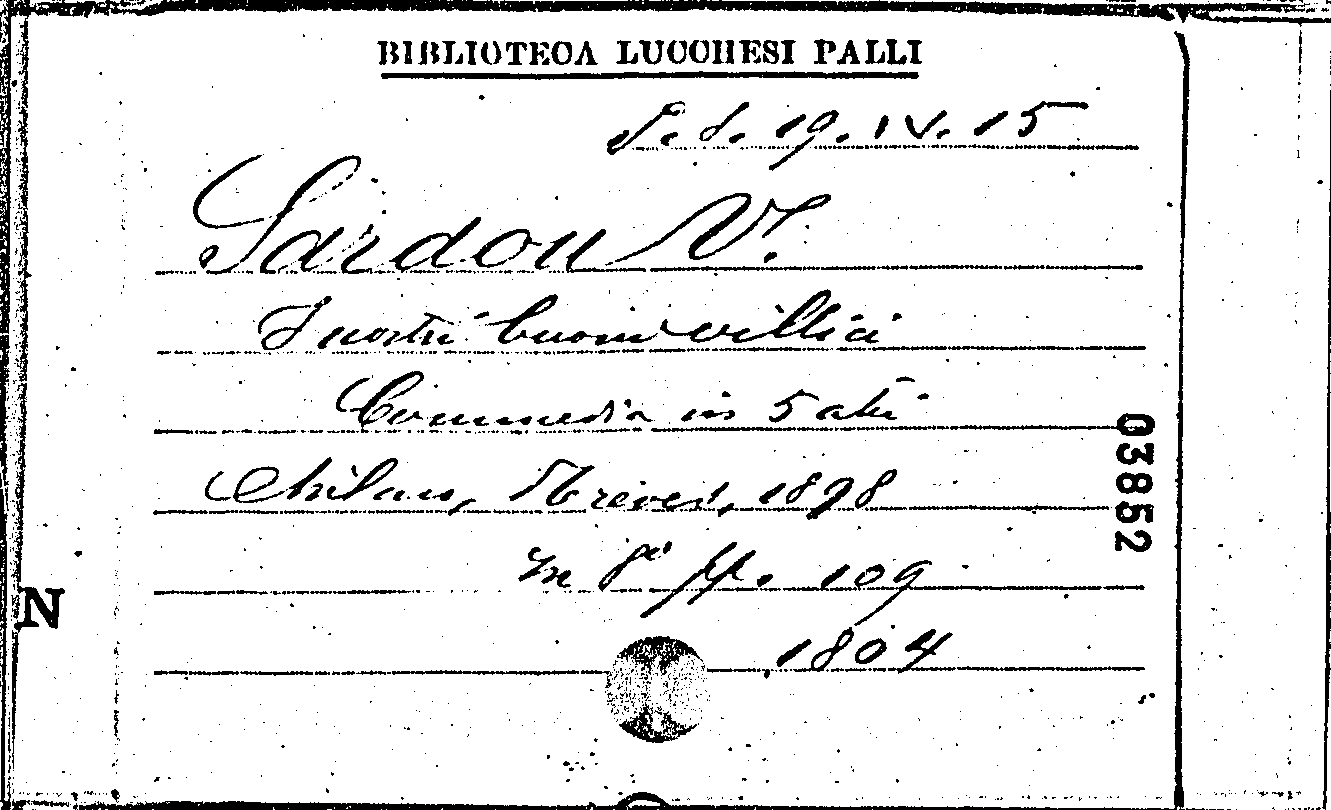 BIBLIOTECA LUCCHESI PALLI
S. d. 19. IV. 15
Sardou V.
I nostri buoni villici
Commedia in 5 atti
Milano, Treves, 1898
In 8° pp. 109
1804
03852
N